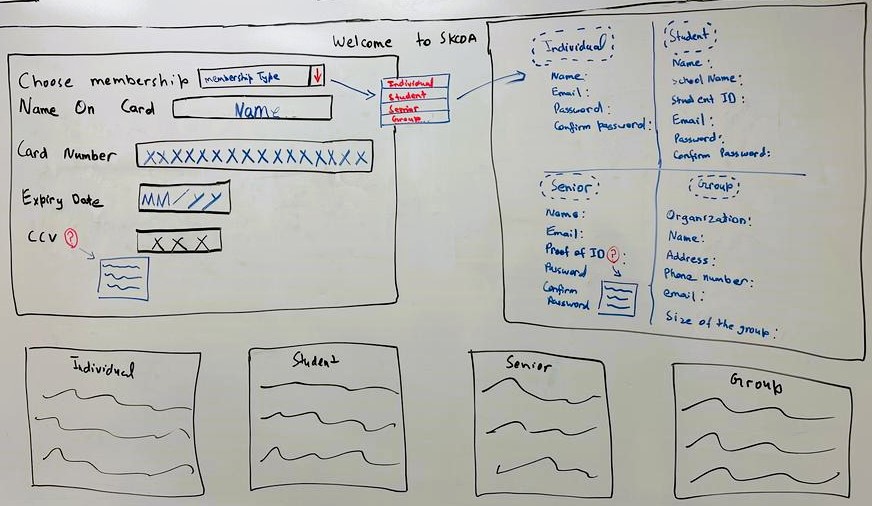 Welcome to SKCDA
Choose membership
membership Type
Name On Card
Name
Card Number
XXXXXXXXXXXXXXXX
Expiry Date
MM/YY
CCV ?
XXX
Individual
Student
Senior
Group
Individual
Name:
Email:
Password:
Confirm password:
Student
Name:
School Name:
Student ID:
Email:
Password:
Confirm Password:
Senior
Name:
Email:
Proof of ID ?:
Password
Confirm
Password
Group
Organization:
Name:
Address:
Phone number:
email:
Size of the group:
Individual
Student
Senior
Group